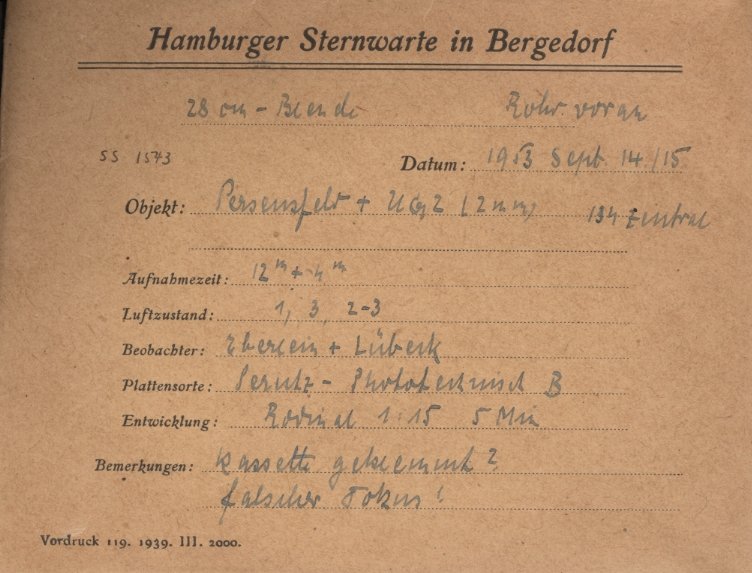 Hamburger Sternwarte in Bergedorf
28 cm - Blende Rohr voran
SS 1573
Datum: 1953 Sept. 14./15
Objekt: Perseusfeld + (2 mm) 134 zentral
Aufnahmezeit: 12 m + 4 m
Luftzustand: 1, 3, 2-3
Beobachter: Eberlein + Lübeck
Plattensorte: Perutz - Phototechnisch B
Entwicklung: Rodinal 1:15 5 Min
Bemerkungen: Kassette geklemmt?
falscher Fokus!
Vordruck 119. 1939. III. 2000.